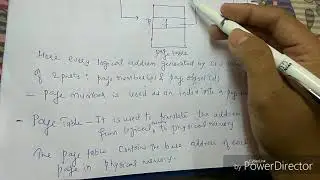 p
f
page table
Here every logical address generated by
of 2 parts: page number(p) & page offset(d)
- page number is used as an index into a
- Page Table - It is used to translate the address
from logical to physical memory
The page table contains the base address of each
page in physical memory.
Made with
PowerDirector